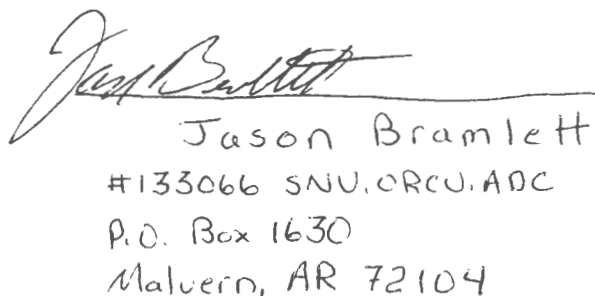 Jason Bramlett
#133066 SNU.ORCU.ADC
P.O. Box 1630
Malvern, AR 72104